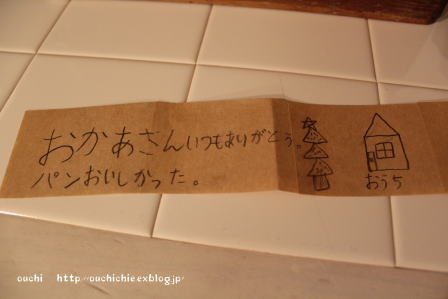 おかあさんいつもありがとう。
パンおいしかった。
おうち
ouchi http://ouchichie.exblog.jp/